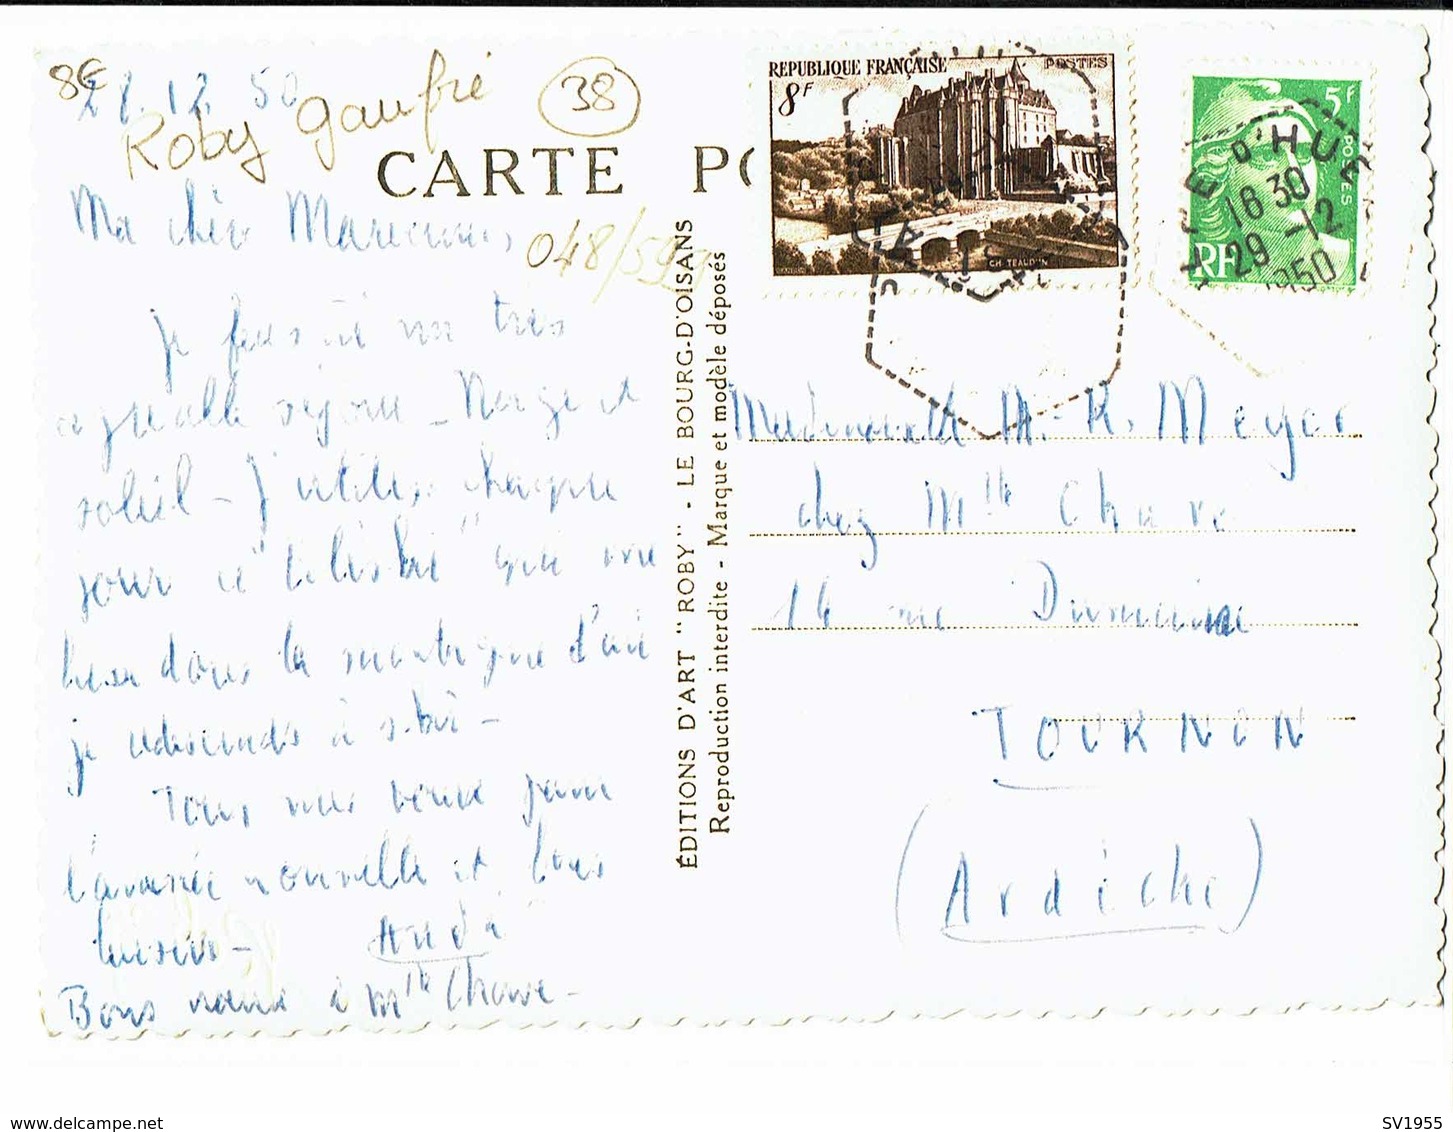 8€
28.12.50
Roby gaufré
38
CARTE PO
048/599
Ma chère
Je fais un très
agréable séjour - Neige et
soleil - J'utilise chaque
jour le "téléski" qui me
hisse dans la montagne d'où
je redescends à ski -
Tous mes vœux pour
l'année nouvelle et bons
baisers - André
Bons vœux à Mlle Chave -
ÉDITIONS D'ART "ROBY" - LE BOURG-D'OISANS
Reproduction interdite - Marque et modèle déposés
REPUBLIQUE FRANÇAISE POSTES
8F
CHATEAUDUN
5F
POSTES
RF
D'HUEZ
18 30
29 -12
1950
Mademoiselle M.-R. Meyer
chez Mlle Chave
16 rue
TOURNON
(Ardèche)
delcampe.net
SV1955